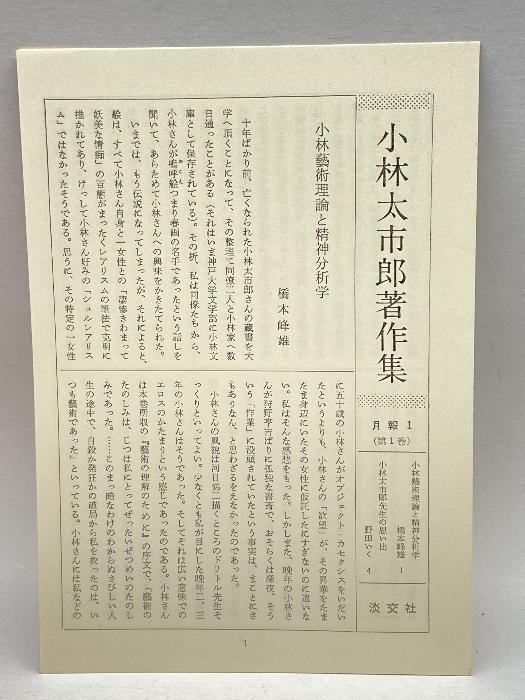 小林太市郎著作集
月報1
(第1巻)
小林藝術理論と精神分析学
橋本峰雄 1
小林太市郎先生の思い出
野田いく 4
淡交社
小林藝術理論と精神分析学
橋本峰雄
十年ばかり前、亡くなられた小林太市郎さんの蔵書を大
学へ頂くことになって、その整理に同僚二人と小林家へ数
日通ったことがある(それはいま神戸大学文学部に小林文
庫として保存されている)。その折、私は同僚たちから、
小林さんが嗚呼絵つまり春画の名手であったという話しを
聞いて、あらためて小林さんへの興味をかきたてられた。
いまでは、もう伝説になってしまったが、それによると、
絵は、すべて小林さん自身と一女性との「凄惨きわまって
妖美な情痴」の百態がまったくレアリスムの筆法で克明に
描かれてあり、けっして小林さん好みの「シュルレアリス
ム」ではなかったそうである。思うに、その特定の一女性
に五十歳の小林さんがオブジェクト・カセクシスをいだい
たというよりも、小林さんの「欲望」が、その昇華をたま
たま身辺にいたその女性に仮託したにすぎないのに違いな
い。私はそんな感想をもった。しかしまた、晩年の小林さ
んが狩野亨吉ばりに孤独な書斎で、おそらくは深夜、そう
いう「作業」に没頭されていたという事実は、まことにさ
もありなん、と思わざるをえなかったのであった。
小林さんの風貌は河目悌二描くところのドリトル先生そ
っくりといってよい。少なくとも私が目にした晩年二、三
年の小林さんはそうであった。そしてそれは広い意味での
エロスのかたまりという感じであったのである。小林さん
は本巻所収の『藝術の理解のために』の序文で、「藝術の
たのしみは、じつは私にとってぜったいぜつめいのたのし
みであった。……このまっ暗なわけのわからぬさびしい人
生の途中で、自殺か発狂かの破局から私を救ったのは、い
つも藝術であった」といっている。小林さんには私などの
1